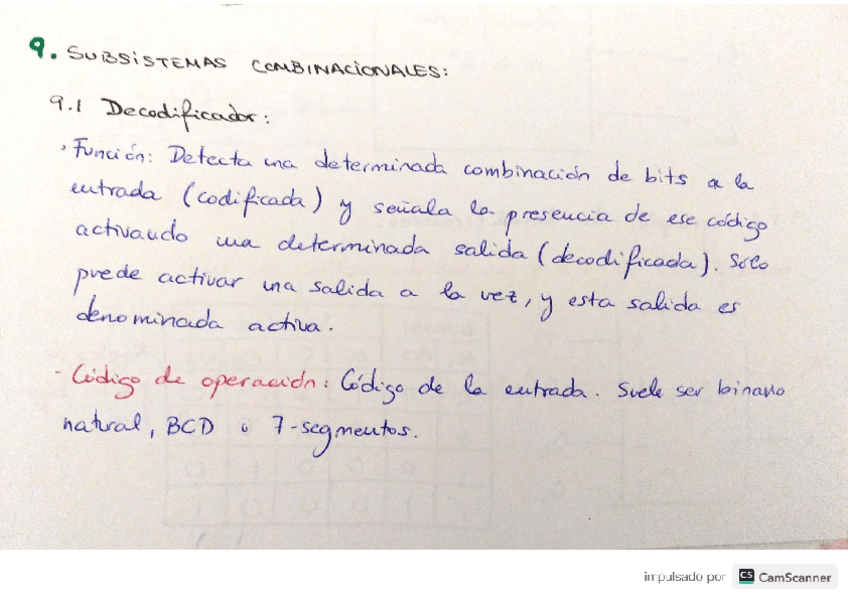 9. SUBSISTEMAS COMBINACIONALES:
9.1 Decodificador:
· Función: Detecta una determinada combinación de bits a la
entrada (codificada) y señala la presencia de ese código
activando una determinada salida (decodificada). Solo
puede activar una salida a la vez, y esta salida es
denominada activa.
- Código de operación: Código de la entrada. Suele ser binario
natural, BCD o 7-segmentos.
impulsado por CS CamScanner